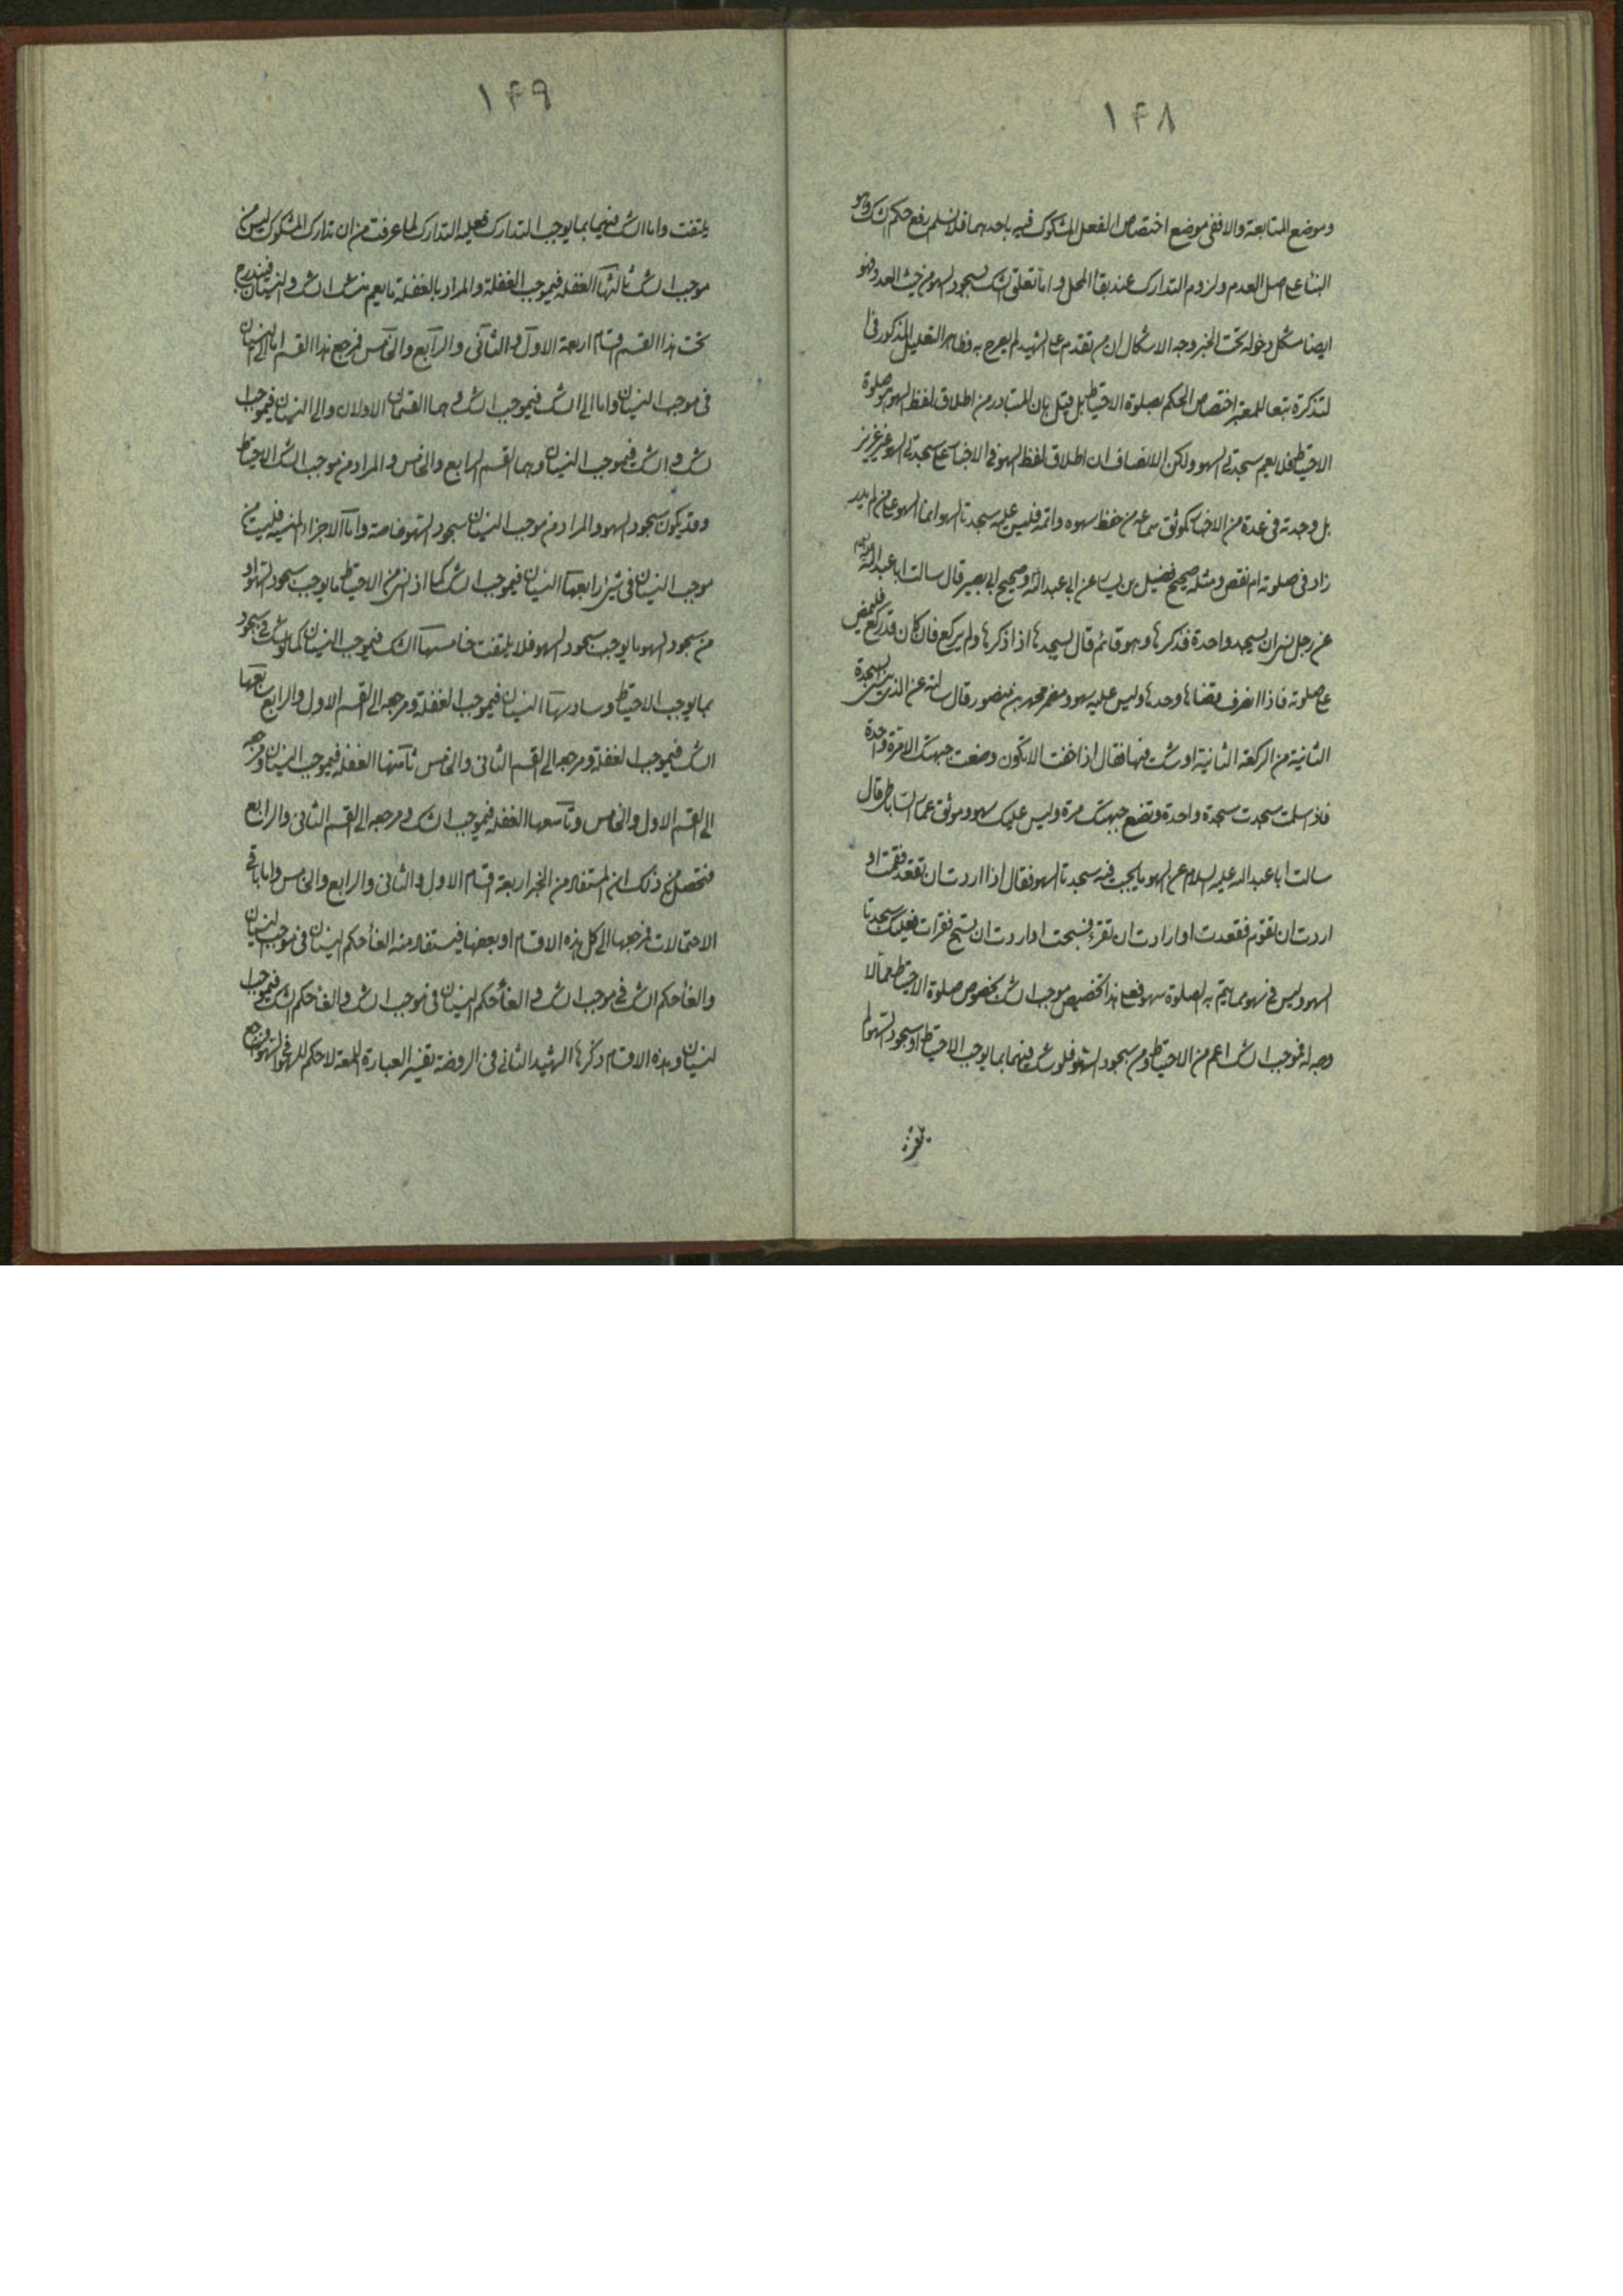 ١۴٨
وموضع المتابعة والا ففى موضع اختصاص الفعل المشكوك فيه باحدهما فلا نسلم رفع حكم الشك وهو
البناء على اصل العدم ولزوم التدارك عند بقاء المحل واما تعلق الشك بسجود السهو من حيث العدد فهو
ايضا مشكل دخوله تحت الخبر وجه الاشكال ان من تقدم على الشهيد لم يصرح به وظاهر التعليل المذكور فى
التذكرة تبعا للمعتبر اختصاص الحكم بصلوة الاحتياط بل قيل بان المتبادر من اطلاق لفظ السهو هو صلوة
الاحتياط فلا يعم سجدتى السهو ولكن الانصاف ان اطلاق لفظ السهو فى الاخبار على سجدتى السهو غير عزيز
بل وجدته فى عدة من الاخبار كموثق سماعه من حفظ سهوه واتمه فليس عليه سجدتا السهو انما السهو على من لم يدر
زاد فى صلوته ام نقص ومثله صحيح فضيل بن يسار عن ابى عبد الله وصحيح ابى بصير قال سالت ابا عبد الله
عن رجل نسى ان يسجد واحدة فذكرها وهو قائم قال يسجدها اذا ذكرها ولم يركع فان كان قد ركع فليمض
على صلوته فاذا انصرف قضاها وحدها وليس عليه سهو ومضمر محمد بن منصور قال سالته عن الذى ينسى السجدة
الثانية من الركعة الثانية او شك فيها فقال اذا خفت الا تكون وضعت جبهتك الا مرة واحدة
فاذا سلمت سجدت سجدة واحدة وتضع جبهتك مرة وليس عليك سهو وموثق عمار الساباطى قال
سالت ابا عبد الله عليه السلام عن السهو ما يجب فيه سجدتا السهو فقال اذا اردت ان تقعد فقمت او
اردت ان تقوم فقعدت او ارادت ان تقرء فسبحت او اردت ان تسبح فقرات فعليك سجدتا
السهو وليس فى سهو مما يتم به الصلوة سهو فعلى هذا تخصيص موجب الشك بخصوص صلوة الاحتياط مما لا
وجه له فموجب الشك اعم من الاحتياط ومن سجود السهو فلو شك فيهما بما يوجب الاحتياط او سجود السهو لم
١۴٩
يلتفت واما الشك فيهما بما يوجب التدارك فعليه التدارك لما عرفت من ان تدارك المشكوك ليس من
موجب الشك ثالثها الغفلة فيموجب الغفلة والمراد بالغفلة ما يعم الشك والنسيان فيندرج
تحت هذا القسم اقسام اربعة الاول والثانى والرابع والخامس فمرجع هذا القسم اما الى النسيان
فى موجب النسيان واما الى الشك فيموجب الشك وهما القسمان الاولان والى النسيان فيموجب
الشك والشك فيموجب النسيان وهما القسم الرابع والخامس والمراد من موجب الشك الاحتياط
وقد يكون سجود السهو والمراد من موجب النسيان سجود السهو خاصة واما الاجزاء المنسيه فليست من
موجب النسيان فى شئ رابعها النسيان فيموجب الشك كما اذا نسى من الاحتياط ما يوجب سجود السهو او
من سجود السهو ما يوجب سجود السهو فلا يلتفت خامسها الشك فيموجب النسيان كما لو شك فى سجود
بما يوجب الاحتياط وسادسها النسيان فيموجب الغفلة ومرجعه الى القسم الاول والرابع سابعها
الشك فيموجب الغفلة ومرجعه الى القسم الثانى والخامس ثامنها الغفلة فيموجب النسيان ومرجعه
الى القسم الاول والخامس وتاسعها الغفله فيموجب الشك ومرجعه الى القسم الثانى والرابع
فتحصل من ذلك ان المستفاد من الخبر اربعة اقسام الاول والثانى والرابع والخامس واما باقى
الاحتمالات فمرجعها الى كل هذه الاقسام او بعضها فيستفاد منه الغاء حكم النسيان فى موجب النسيان
والغاء حكم الشك فى موجب الشك والغاء حكم النسيان فى موجب الشك والغاء حكم الشك فى موجب
النسيان وهذه الاقسام ذكرها الشهيد الثانى فى الروضة تفسير العبارة اللمعة لاحكم للسهو فى السهو